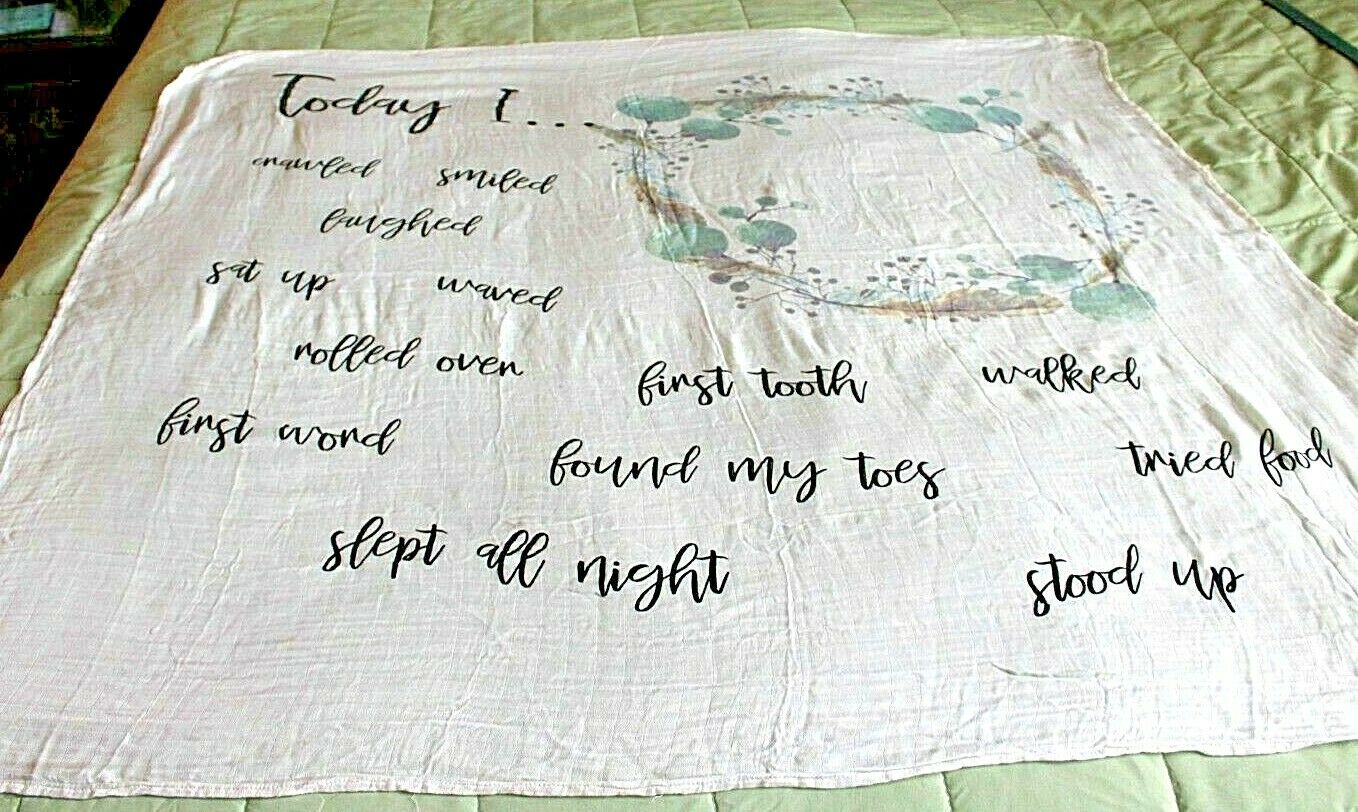 Today I...
crawled smiled
laughed
sat up waved
rolled over
first tooth walked
first word
found my toes tried food
slept all night stood up